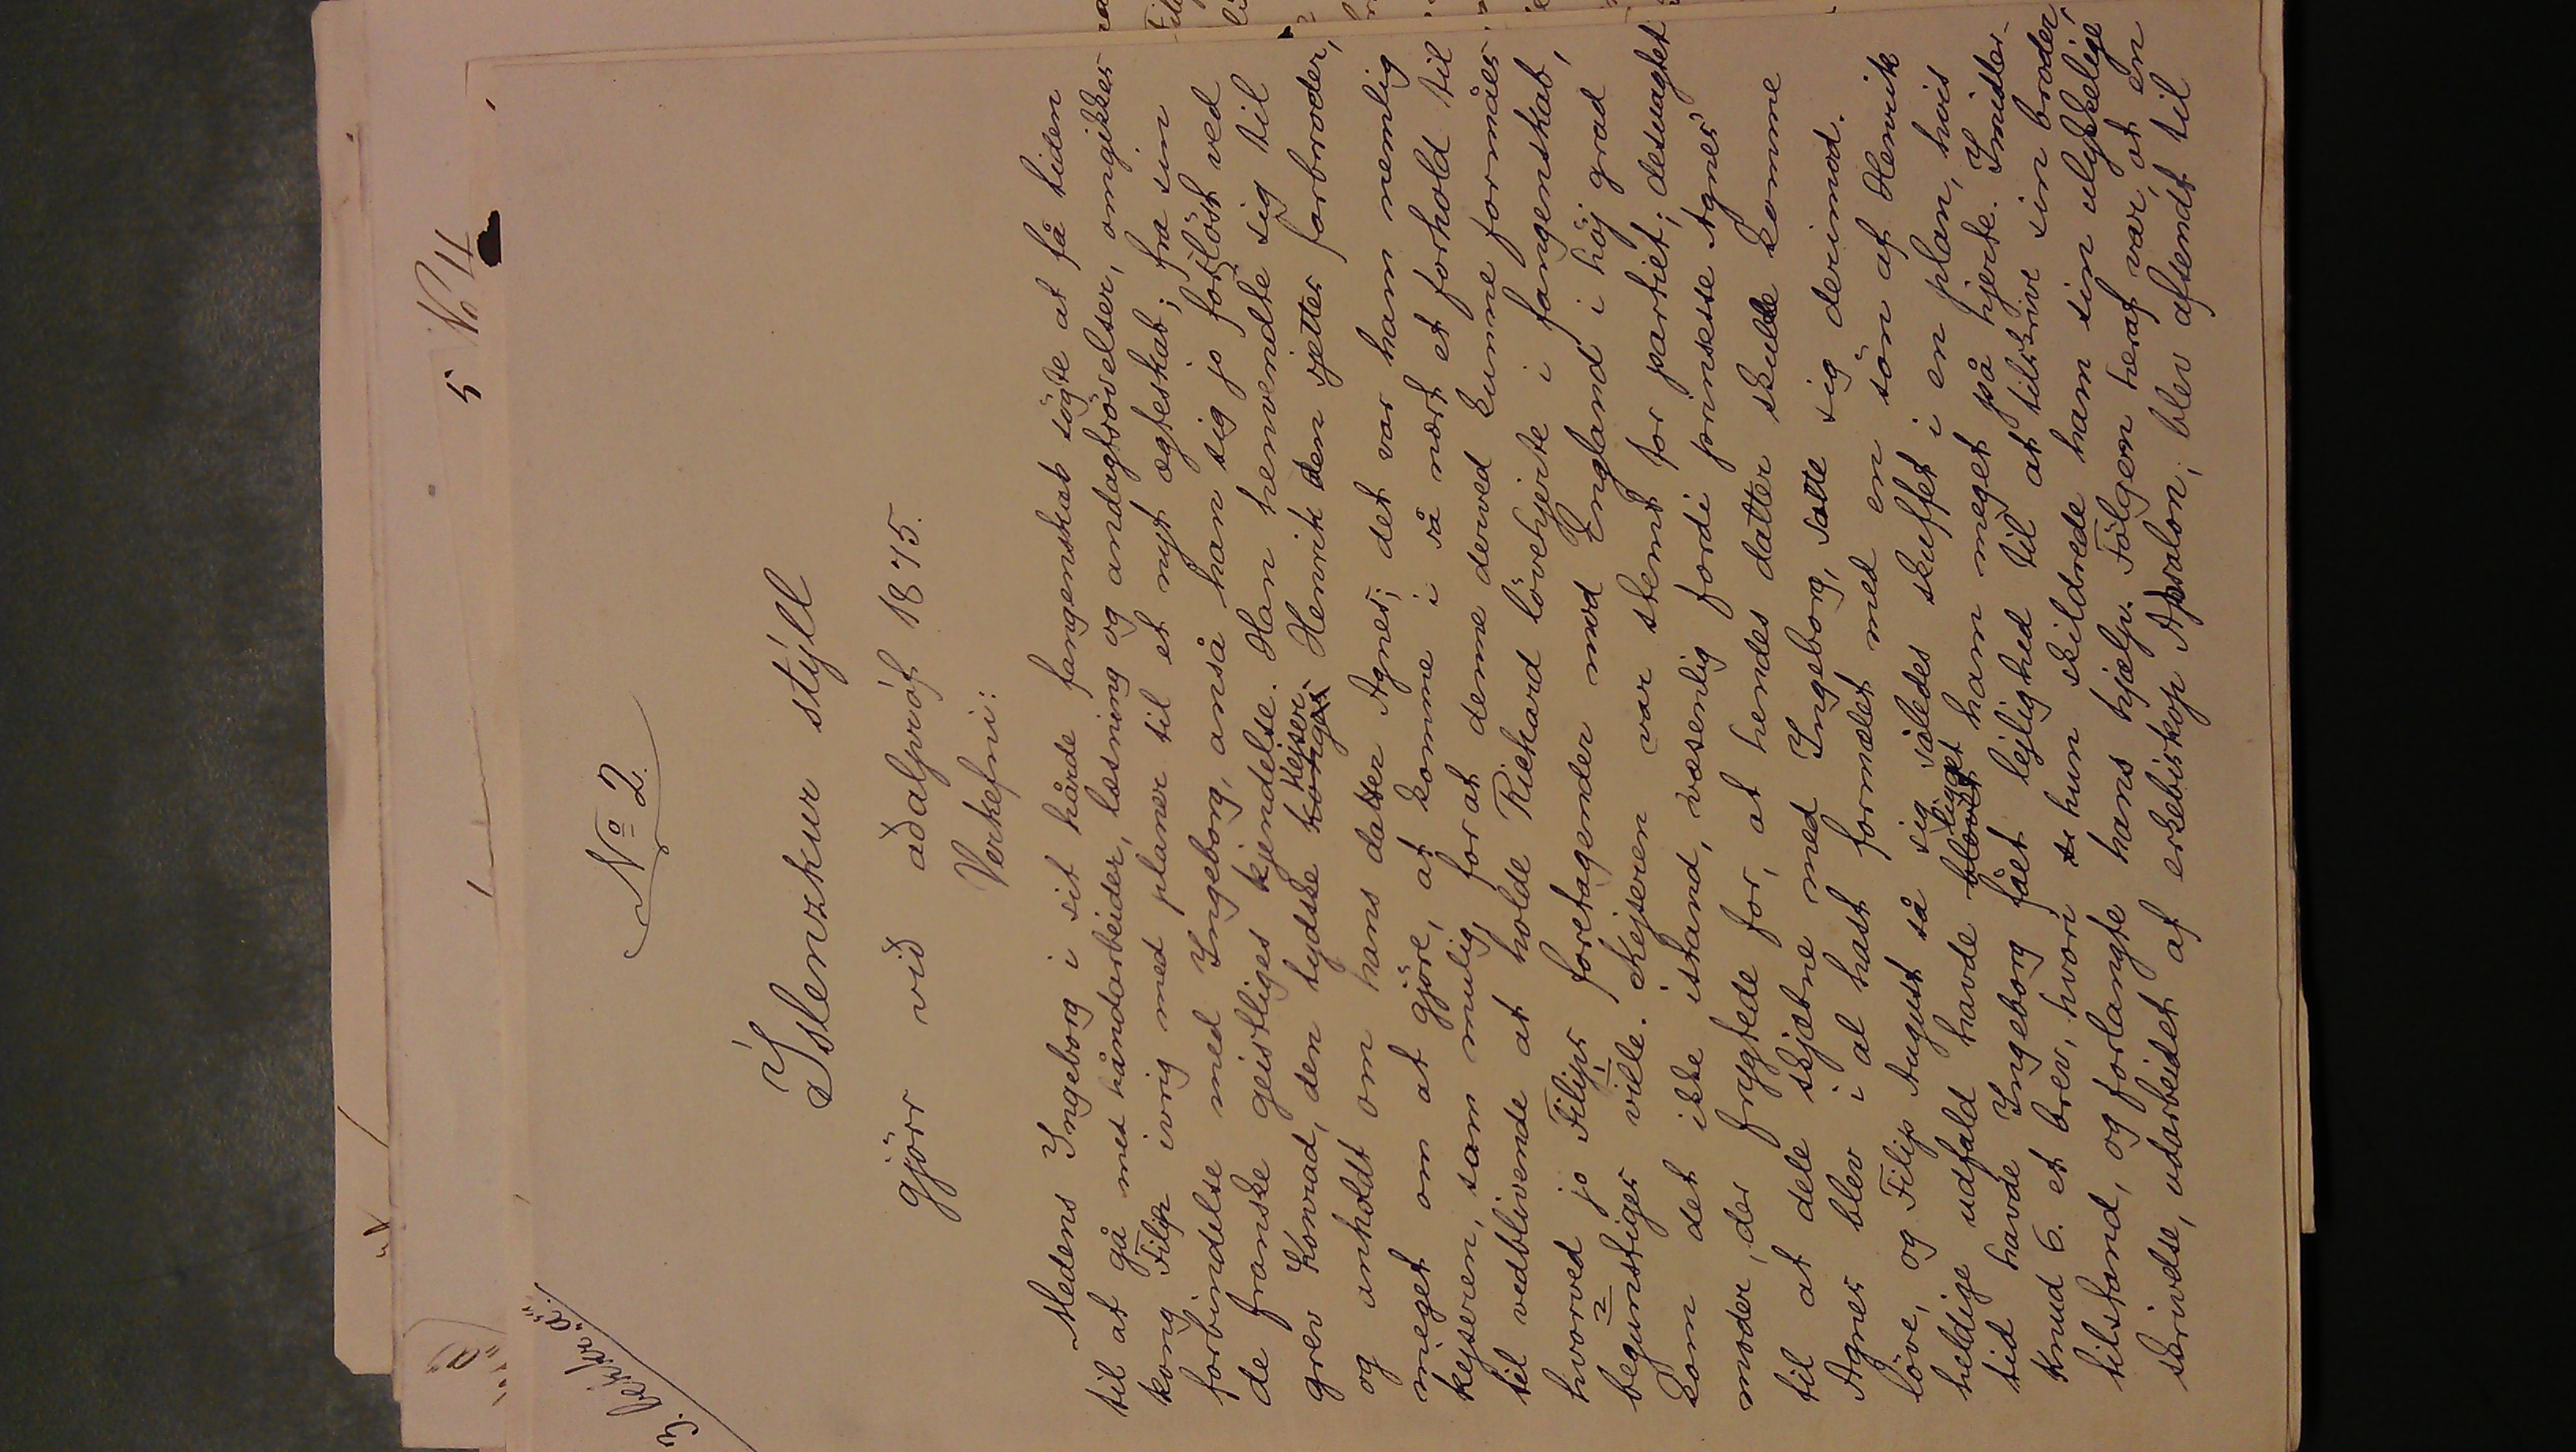 5 No 4
3. bekkr. "a"
No 2.
Íslenzkur stýll
gjörr við aðalpróf 1875.
Verkefni:
Medens Ingeborg i sit hårde fangenskab søgte at få tiden
til at gå med håndarbeider, læsning og andagtsövelser, omgikkes
kong Filip ivrig med planer til et nyt ægteskab; fra sin
forbindelse med Ingeborg, anså han sig jo forlöst ved
de franske geistliges kjendelse. Han henvendte sig til
grev Konrad, den tydske kejser Henrik den sjettes farbroder,
og anholdt om hans datter Agnes; det var ham nemlig
meget om at gjöre, at komme i så nært et forhold til
kejseren, som mulig, for at denne derved kunne formåes
til vedblivende at holde Rickard lövehjerte i fangenskab,
hvorved jo Filips foretagender mod England i höj grad
begunstiges ville. Kejseren var stemt for partiet; desuagtet
kom det ikke istand, væsenlig fordi prinsesse Agnes'
moder, der frygtede for, at hendes datter skulde komme
til at dele skjæbne med Ingeborg, satte sig derimod.
Agnes blev i al hast formælet med en sön af Henrik
löve, og Filip August så sig således skuffet i en plan, hvis
heldige udfald havde ligget ham meget på hjerte. Imidler-
tid havde Ingeborg fået lejlighed til at tilskrive sin broder,
Knud 6. et brev, hvori hun skildrede ham sin ulykkelige
tilstand, og forlangte hans hjælp. Fölgen heraf var, at en
skrivelse, udarbeidet af erkebiskop Absalon, blev afsendt til